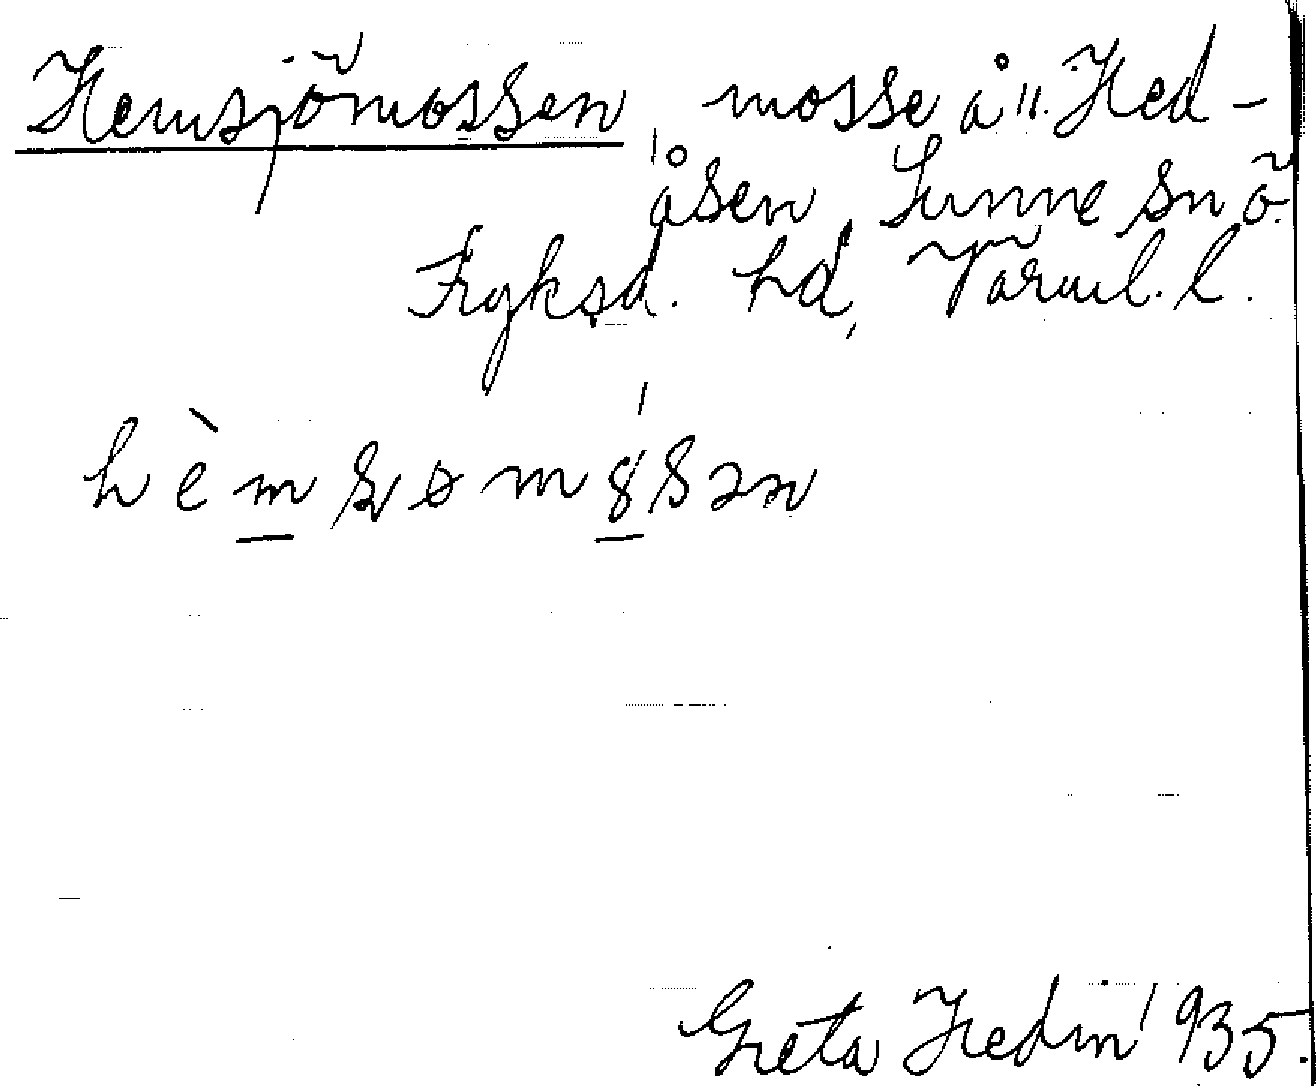 Hemsjömossen, mosse å ii. Hed-
åsen, Sunne sn ö.
Fryksd. hd, Värml. l.
hèmʂømósən
Greta Hedin 1935.